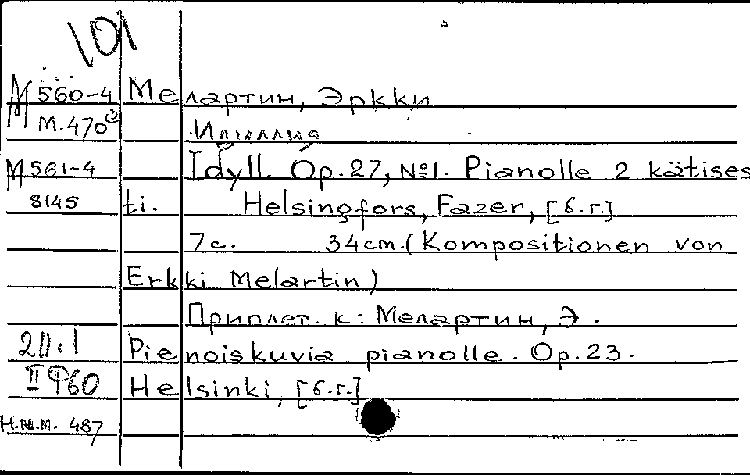 101
М 560-4 Мелартин, Эркки
М.470 Идиллия
М 561-4 Idyll. Op.27, №1. Pianolle 2 kätises
8145 ti. Helsingfors, Fazer, [б.г.]
7с. 34см. (Kompositionen von
Erkki Melartin)
Приплет. к: Мелартин, Э.
Pienoiskuvia pianolle. Op.23.
II Ф60 Helsinki, [б.г.]
487